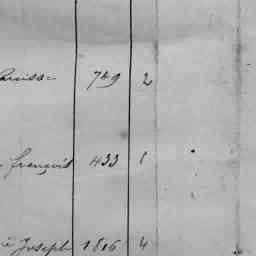 749 2
françois 433 1
Joseph 1816 4